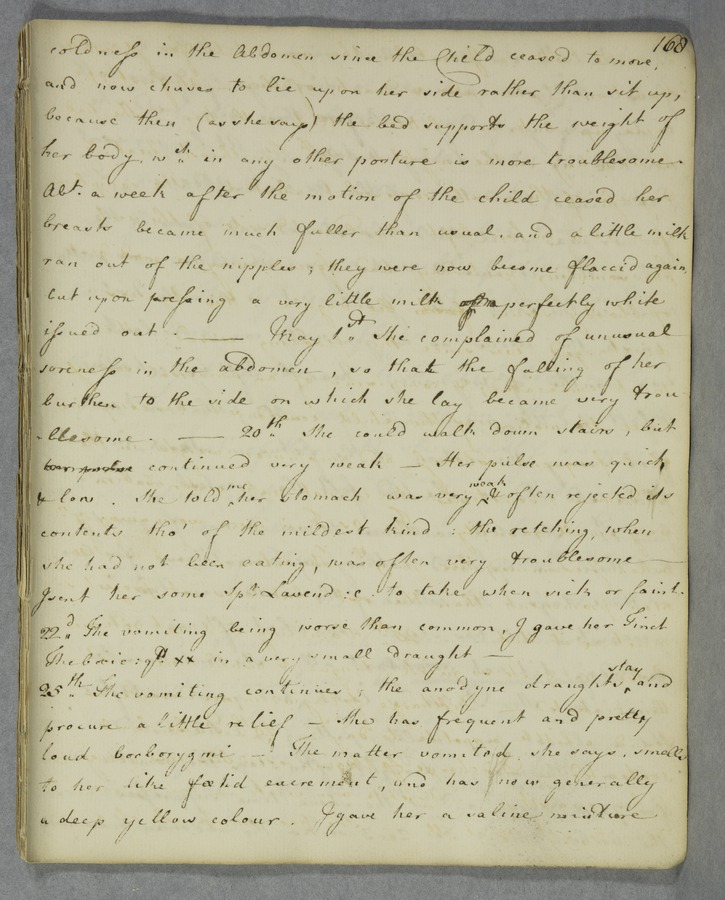 168
coldness in the Abdomen since the Child ceased to move,
and now chuses to lie upon her side rather than sit up,
because then (as she says) the bed supports the weight of
her body, wch in any other posture is more troublesome.
Abt. a week after the motion of the child ceased her
breasts became much fuller than usual, and a little milk
ran out of the nipples; they were now become flaccid again,
but upon pressing a very little milk perfectly white
issued out. — May 1st She complained of unusual
soreness in the abdomen, so that the falling of her
burthen to the side on which she lay became very trou
-blesome. — 20th She could walk down stairs, but
continued very weak — Her pulse was quick
& low. She told me her stomach was very weak & often rejected its
contents tho' of the mildest kind: the retching, when
she had not been eating, was often very troublesome —
I sent her some Spt. Lavend: c. to take when sick or faint.
22d The vomiting being worse than common, I gave her Tinct
Thebaic: gtt xx in a very small draught —
25th The vomiting continues; the anodyne draughts stay, and
procure a little relief — She has frequent and pretty
loud borborygmi — The matter vomited, she says, smells
to her like fœtid excrement, and has now generally
a deep yellow colour. I gave her a saline mixture